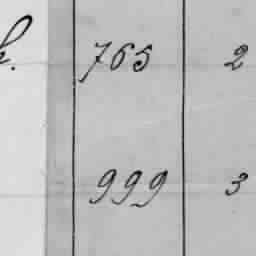 765 2
999 3